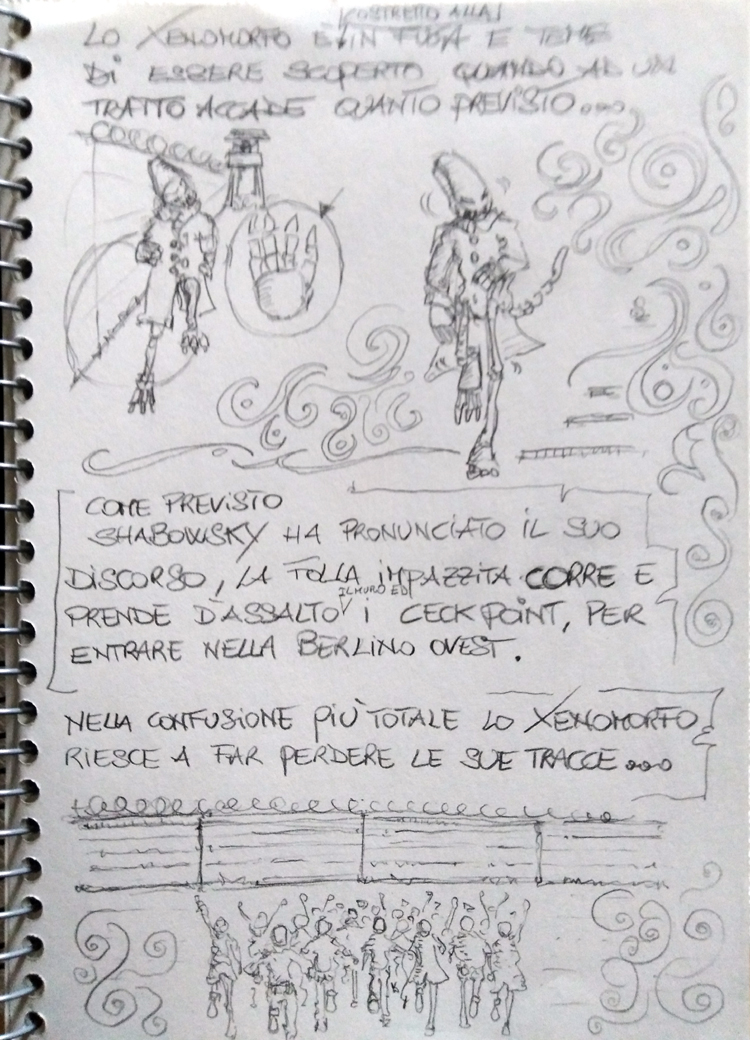 COSTRETTO ALLA
LO XENOMORFO È IN FUGA E TEME
DI ESSERE SCOPERTO QUANDO AD UN
TRATTO ACCADE QUANTO PREVISTO...
COME PREVISTO
SHABOWSKY HA PRONUNCIATO IL SUO
DISCORSO, LA FOLLA IMPAZZITA CORRE E
IL MURO ED
PRENDE D'ASSALTO I CECKPOINT, PER
ENTRARE NELLA BERLINO OVEST.
NELLA CONFUSIONE PIÙ TOTALE LO XENOMORFO
RIESCE A FAR PERDERE LE SUE TRACCE...